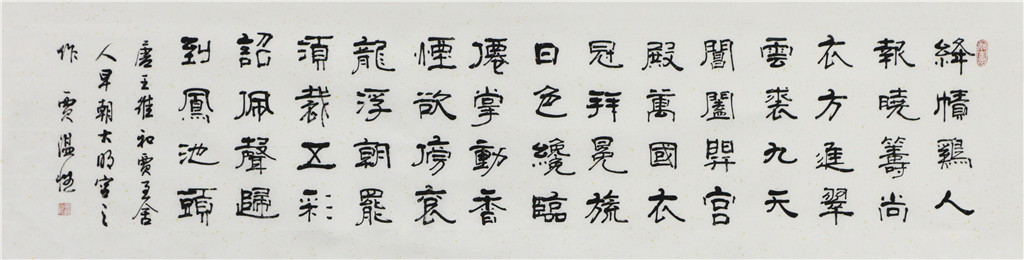 絳幘鷄人
報曉籌尚
衣方進翠
雲裘九天
閶闔開宮
殿萬國衣
冠拜冕旒
日色纔臨
僊掌動香
煙欲傍衮
龍浮朝罷
須裁五彩
詔佩聲歸
到鳳池頭
唐王維和賈至舍
人早朝大明宮之
作 賈溫